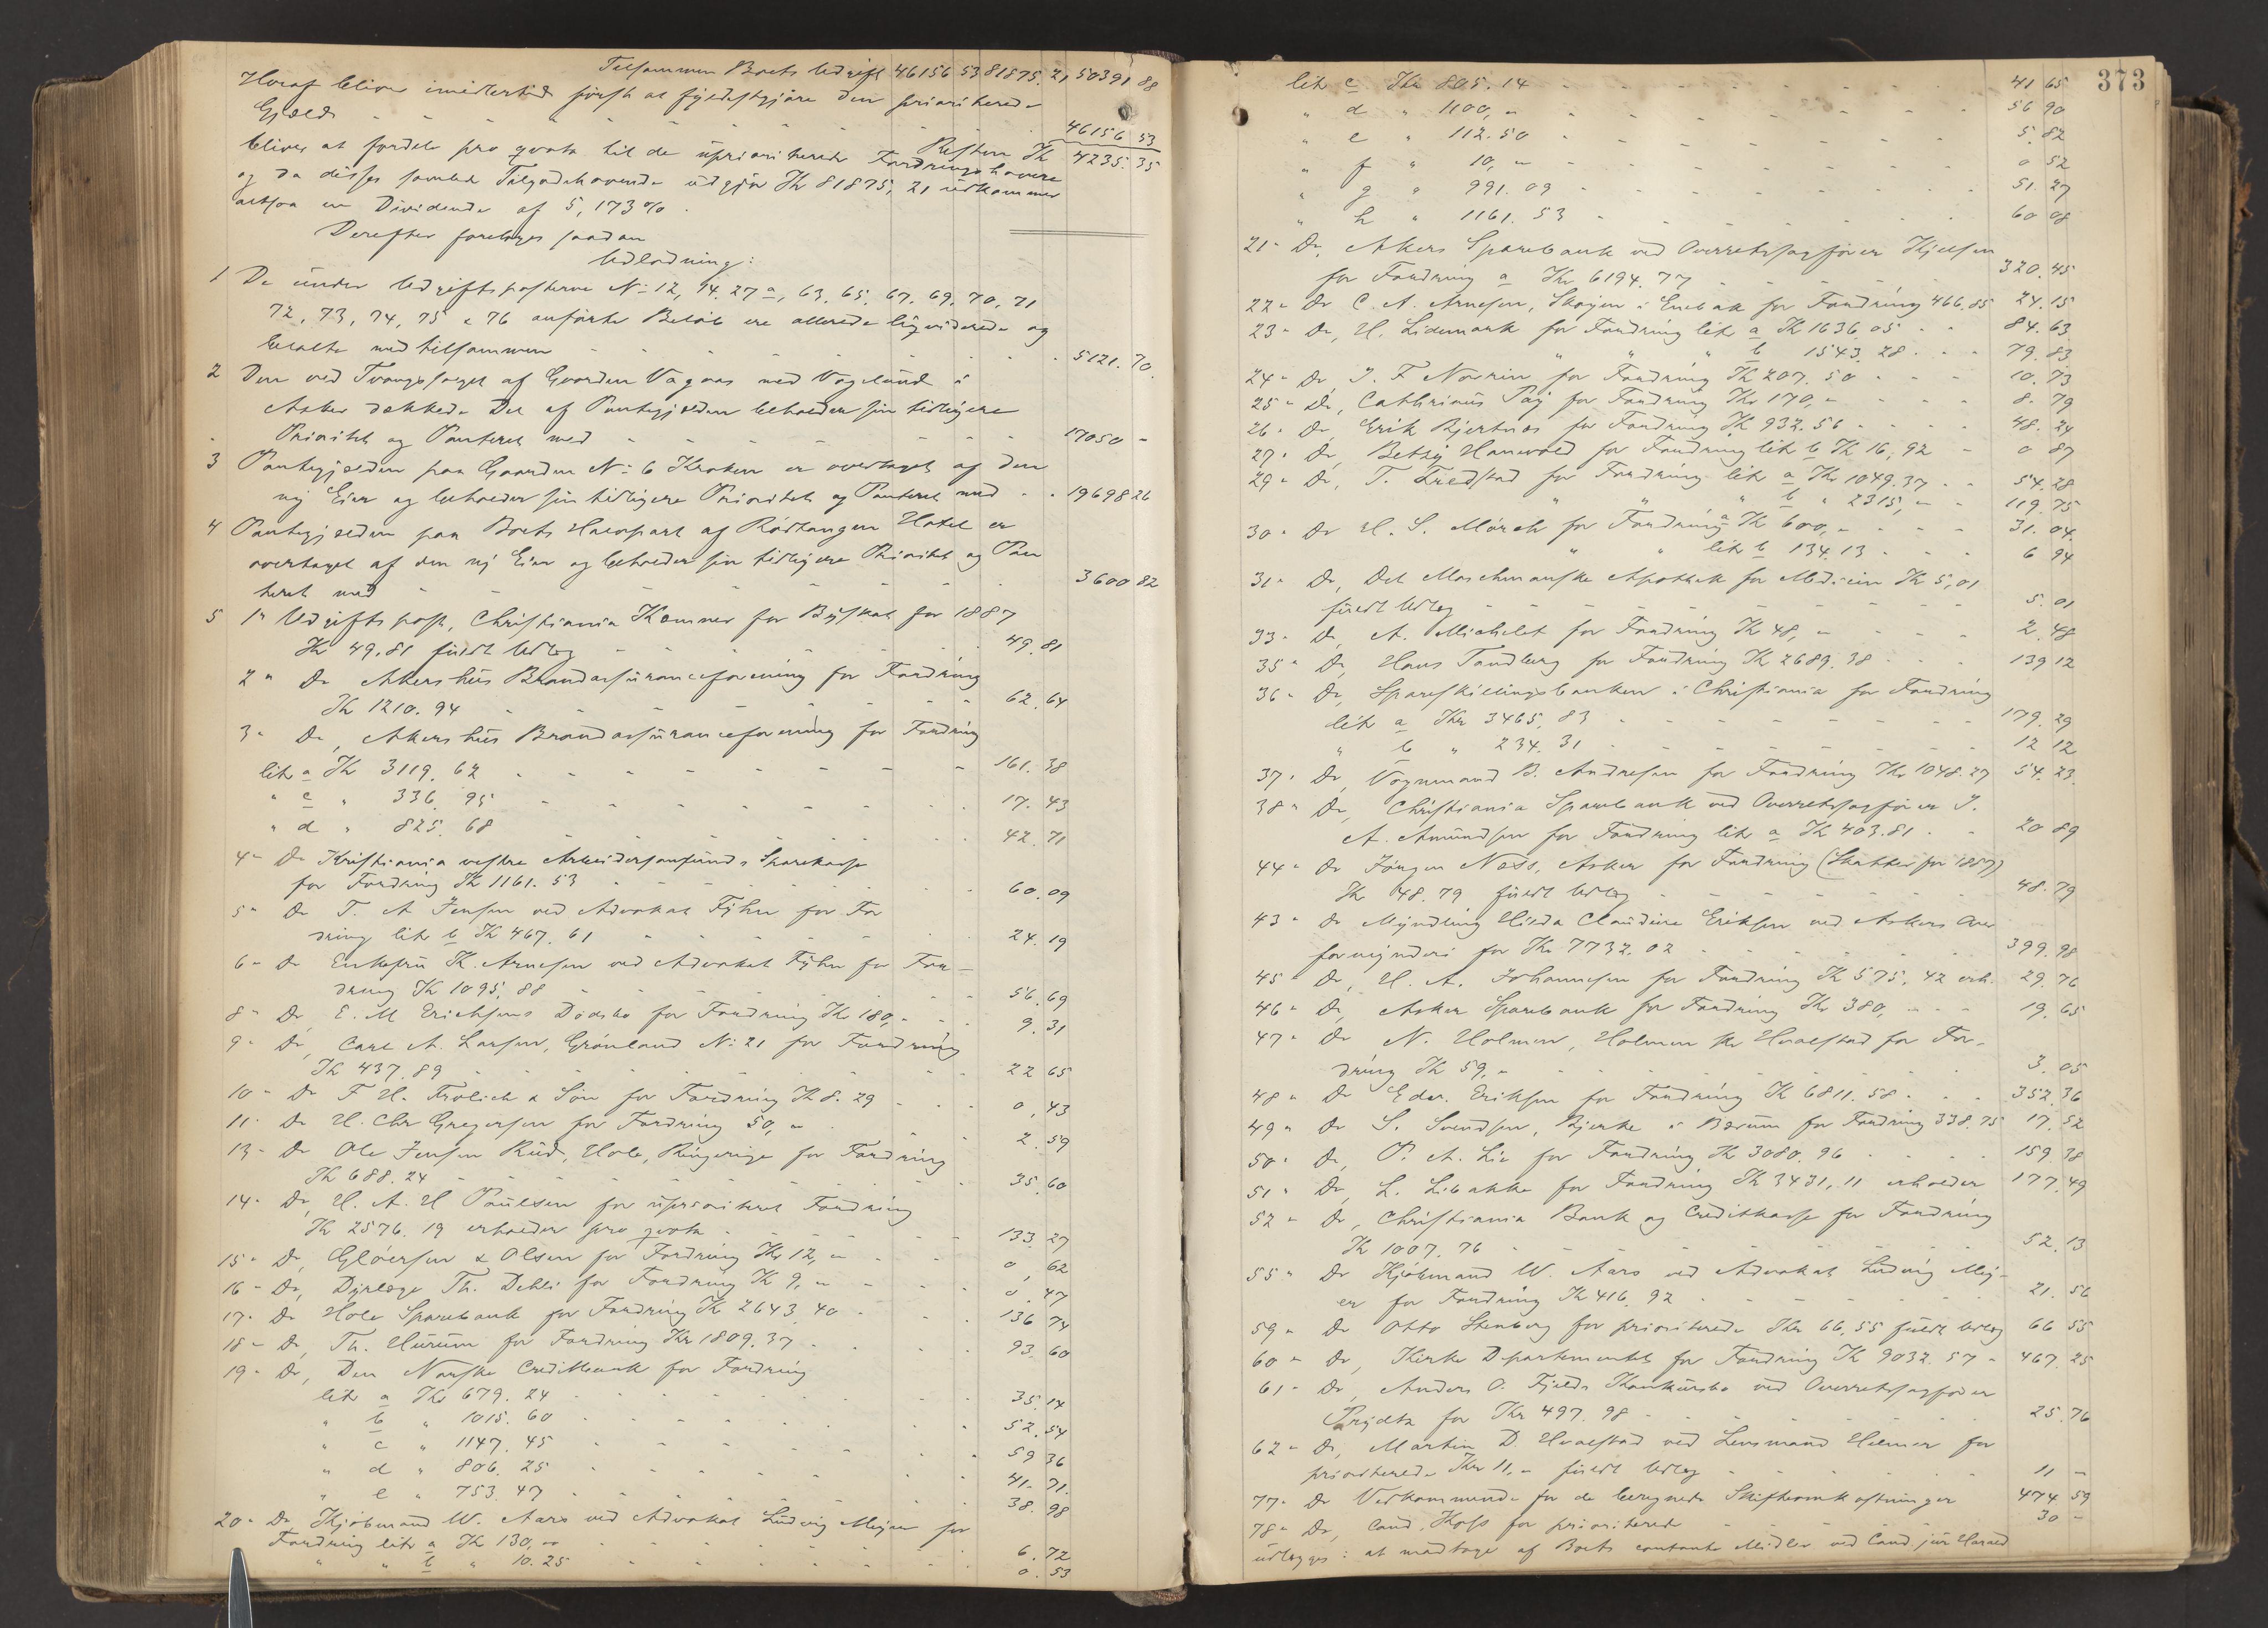 Tilsammen Boets Udgift 46156 53 81875. 21 50391 88
Heraf bliver imidlertid først at fyldestgjøre den prioriterede
Gjæld - - - - - - - 46156 53
Resten Kr 4235. 35
bliver at fordele pro qvota til de uprioriterede Fordringshavere
og da disses samlede Tilgodehavende udgjør Kr 81875, 21 udkommer
altsaa en Dividende af 5,173 %.
Derefter foretages saadan
Udlodning:
1 De under Udgiftsposterne No 12, 14. 27 a, 63. 65. 67. 69. 70. 71
72, 73, 74, 75 & 76 anførte Beløb ere allerede liqviderede og
betalte med tilsammen - - - 5121. 70.
2 Den ved Tvangssalget af Gaarden Vagaas med Vøyelund i
Asker dækkede Del af Pantegjælden beholder sin tidligere
Prioritet og Panteret med - - - 17050 -
3 Pantegjælden paa Gaarden No 6 Kroken er overtaget af den
ny Eier og beholder sin tidligere Prioritet og Panteret med - - 19698 26
4 Pantegjælden paa Boets Halvpart af Rödtangen Hotel er
overtaget af den ny Eier og beholder sin tidligere Prioritet og Pan
teret med - - - 3600 82
5 1" Udgiftspost, Christiania Kemner for Byskat for 1887
Kr 49. 81 fuldt Udlæg - - - 49. 81
2 " Do Akershus Brandassuranceforening for Fordring
Kr 1210. 94 - - - 62. 64
3 " Do, Akershus Brandassuranceforening for Fordring
litr a Kr 3119. 62 - - - 161. 38
" c " 336. 95 - - - 17. 43
" d " 825. 68 - - - 42. 71
4 " Do Kristiania vestre Arbeidersamfunds Sparekasse
for Fordring Kr 1161. 53 - - - 60. 09
5 " Do T. A Jensen ved Advokat Fyhn for For
dring litr b Kr 467. 61 - - - 24. 19
6 " Do Enkefru K. Arnesen ved Advokat Fyhn for For-
dring Kr 1095. 88 - - - 56. 69
8 " Do, E. M Erichsens Dødsbo for Fordring Kr 180, - - - 9. 31
9 " Do, Carl A. Larsen, Grønland No 21 for Fordring
Kr 437. 89 - - - 22 65
10 " Do F H. Frølich & Søn for Fordring Kr 8. 29 - - - 0, 43
11 " Do H. Chr Gregersen for Fordring 50, " - - - 2. 59
13 " Do Ole Jensen Rud, Hole, Ringerige for Fordring
Kr 688. 24 - - - 35. 60
14 " Do, H. A. H Paulsen for uprioriteret Fordring
Kr 2576. 19 erholder pro qvota - - - 133. 27
15 " Do, Gløersen & Olsen for Fordring Kr 12, " - - - 0, 62
16 " Do, Dyrlæge Th. Dehli for Fordring Kr 9, " - - - 0. 47
17 " Do Hole Sparebank for Fordring Kr 2643. 40 - - - 136 74
18 " Do, Th. Hurum for Fordring Kr 1809. 37 - - - 93 60
19 " Do, Den Norske Creditbank for Fordring
litr a Kr 679. 24 - - - 35. 14
" b " 1015. 60 - - - 52. 54
" c " 1147. 45 - - - 59 36
" d " 806. 25 - - - 41. 71.
" e " 753. 47 - - - 38. 98
20 " Do Kjøbmand W. Aars ved Advokat Ludvig Meyer for
Fordring litr a Kr 130, " - - - 6. 72
" " b " 10. 25 - - - 0. 53
373
litr c Kr 805. 14 - - - 41 65
" d " 1100, " - - - 56 90
" e " 112. 50 - - - 5. 82
" f " 10, " - - - 0 52
" g " 991. 09 - - - 51. 27
" h " 1161. 53 - - - 60 08
21 " Do, Akers Sparebank ved Overretssagfører Hjelsen
for Fordring a Kr 6194. 77 - - - 320. 45
22 " Do C. A. Arnesen, Skøyen i Enebak for Fordring 466. 85 24. 15
23 " Do, H. Lidemark for Fordring litr a Kr 1636. 05 - - 84. 63
" " " b 1543. 28 - - - 79. 83
24 " Do, J. F Norvin for Fordring Kr 207. 50 - - - 10. 73
25 " Do, Cathrinus Pay for Fordring Kr 170, " - - - 8. 79
26 " Do, Erik Bjertnæs for Fordring Kr 932. 56 - - - 48. 24
27 " Do, Betsy Hanevold for Fordring litr b Kr 16, 92 - 0 87
29 " Do, T. Fredstad for Fordring litr a Kr 1049. 37 - - 54. 28
" " " b " 2315, " - 119. 75
30 " Do H. S. Mørch for Fordring a Kr 600, " - - - 31. 04.
" " litr b 134. 13 - - - 6 94
31 " Do, Det Maschmanske Apothek for Medicin Kr 5, 01
fuldt Udlæg - - - 5. 01
33 " Do, A. Michelet for Fordring Kr 48, " - - - 2. 48
35 " Do, Hans Tandberg for Fordring Kr 2689. 38 - - - 139 12
36 " Do, Spareskillingsbanken i Christiania for Fordring
litr a Kr 3465. 83 - - - 179. 29
" b " 234. 31 - - - 12 12
37 " Do, Vognmand B. Andresen for Fordring Kr 1048. 27 54. 23.
38 " Do, Christiania Sparebank ved Overretssagfører J.
A. Amundsen for Fordring litr a Kr 403. 81 - - 20 89
44 " Do Jørgen Næss, Asker for Fordring (Skatter for 1887)
Kr 48. 79 fuldt Udlæg - - - 48. 79
43 " Do Myndling Hilda Claudine Eriksen ved Askers Over
formynderi for Kr 7732. 02 - - - 399. 98
45 " Do, H. A. Johannesen for Fordring Kr 575, 42 erh. 29. 76
46 " Do, Asker Sparebank for Fordring Kr 380, - - - 19. 65
47 " Do N. Holmen, Holmen pr Hvalstad for For-
dring Kr 59, " - - - 3. 05
48 " Do Edv. Eriksen for Fordring Kr 6811. 58 - - - 352. 36
49 " Do S. Svendsen, Bjerke i Bærum for Fordring 338. 75 17. 52
50 " Do, P. A. Lie for Fordring Kr 3080. 96 - - - 159. 38
51 " Do, L. Libakke for Fordring Kr 3431, 11 erholder 177. 49
52 " Do, Christiania Bank og Creditkasse for Fordring
Kr 1007. 76 - - - 52. 13
55 " Do Kjøbmand W. Aars ved Advokat Ludvig Mey-
er for Fordring Kr 416. 92 - - - 21. 56
59 " Do Otto Stenberg for prioriterede Kr 66, 55 fuldt Udlæg 66 55
60 " Do, Kirke Departementet for Fordring Kr 9032. 57 - 467. 25
61 " Do, Anders O. Fjelds Konkursbo ved Overretssagfører
Prydtz for Kr 497. 98 - - - 25. 76
62 " Do, Martin D. Hvalstad ved Lensmand Hilmer for
prioriterede Kr 11, " fuldt Udlæg - - - 11 -
77 " Do Vedkommende for de beregnede Skifteomkostninger 474 59
78 " Do, Cand. Koss for prioriterede - - - 30 -
udlægges: at modtage af Boets contante Midler ved Cand. jur Harald